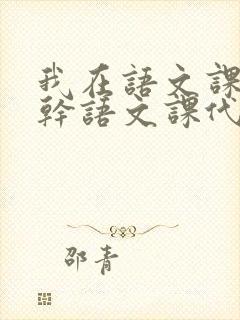 我在語文課
幹語文課代
邵青